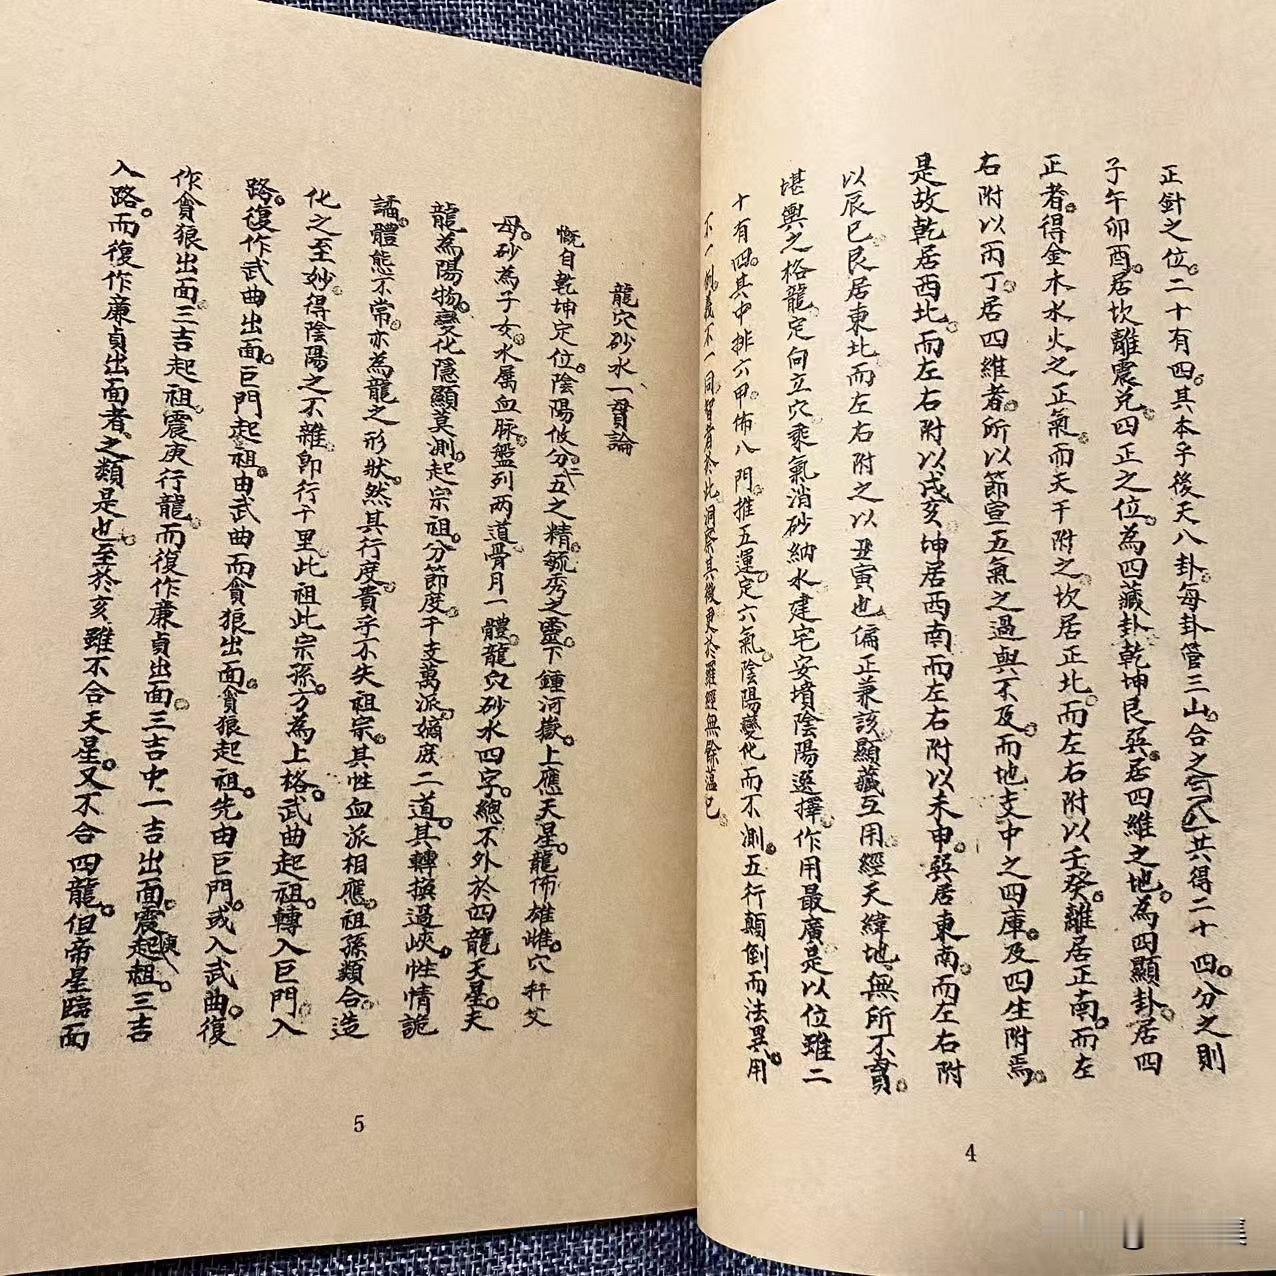 正針之位。二十有四。其本乎後天八卦。每卦管三山。合之三八。共得二十四。分之則
子午卯酉。居坎離震兌。四正之位。為四藏卦。乾坤艮巽。居四維之地。為四顯卦。居四
正者。得金木水火之正氣。而天干附之。坎居正北。而左右附以壬癸。離居正南。而左
右附以丙丁。居四維者。所以節宣五氣之過與不及。而地支中之四庫。及四生附焉。
是故乾居西北。而左右附以戌亥。坤居西南。而左右附以未申。巽居東南。而左右附
以辰巳。艮居東北。而左右附之以丑寅也。偏正兼該。顯藏互用。經天緯地。無所不貫。
堪輿之格龍定向。立穴乘氣。消砂納水。建宅安墳。陰陽選擇。作用最廣。是以位雖二
十有四。其中排六甲。佈八門。推五運。定六氣。陰陽變化而不測。五行顛倒而法異。用
不一例。義不一同。智者於此。洞察其微。更於羅經無餘蘊已。
4
龍穴砂水一貫論
慨自乾坤定位。陰陽攸分。二五之精。毓秀之靈。下鍾河嶽。上應天星。龍佈雄雌。穴粁艾
母。砂為子女。水属血脉。盤列两道。骨月一體。龍穴砂水四字。總不外於四龍天星。夫
龍為陽物。變化隱顯莫測。起宗祖。分節度。千支萬派。嫡庻二道。其轉換過峽。性情詭
譎。體態不常。亦為龍之形狀。然其行度。貴乎不失祖宗。其性血派相應。祖孫類合。造
化之至妙。得陰陽之不雜。即行千里。此祖此宗孫。方為上格。武曲起祖。轉入巨門。入
路。復作武曲出面。巨門起祖。由武曲而貪狼出面。貪狼起祖。先由巨門。或入武曲。復
作貪狼出面。三吉起祖。震庚行龍。而復作廉貞出面。三吉中。一吉出面。震庚起祖。三吉
入路。而復作廉貞出面者。之類是也。至於亥雖不合天星。又不合四龍。但帝星臨面
5